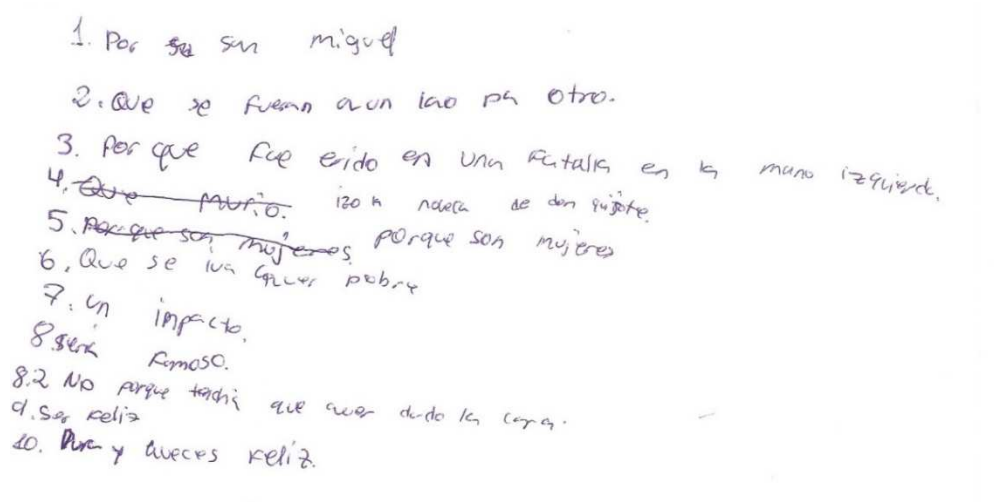 1. Por san miguel
2. Que se fueran a un lao pa otro.
3. Por que fue erido en una fatalla en la mano izquierda.
4. Que murio. izo la novera de don quijote.
5. Porque son mujeres porque son mujeres
6. Que se iva pobre
7. un impacto.
8 será famoso.
8.2 No porque tendria que aver dado la cara.
9. Ser feliz
10. Dura y aveces feliz.